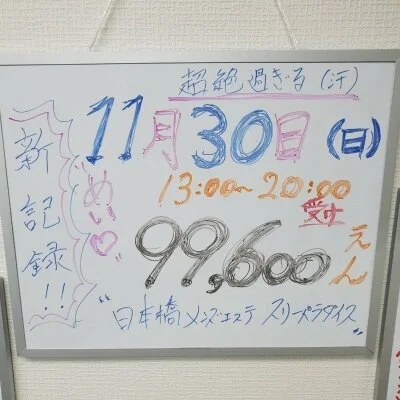 超絶過ぎる(汗)
新記録!!
11月30日(日)
めい♡
13:00〜20:00
受付
99,600えん
"日本橋メンズエステ スリーパラダイス"